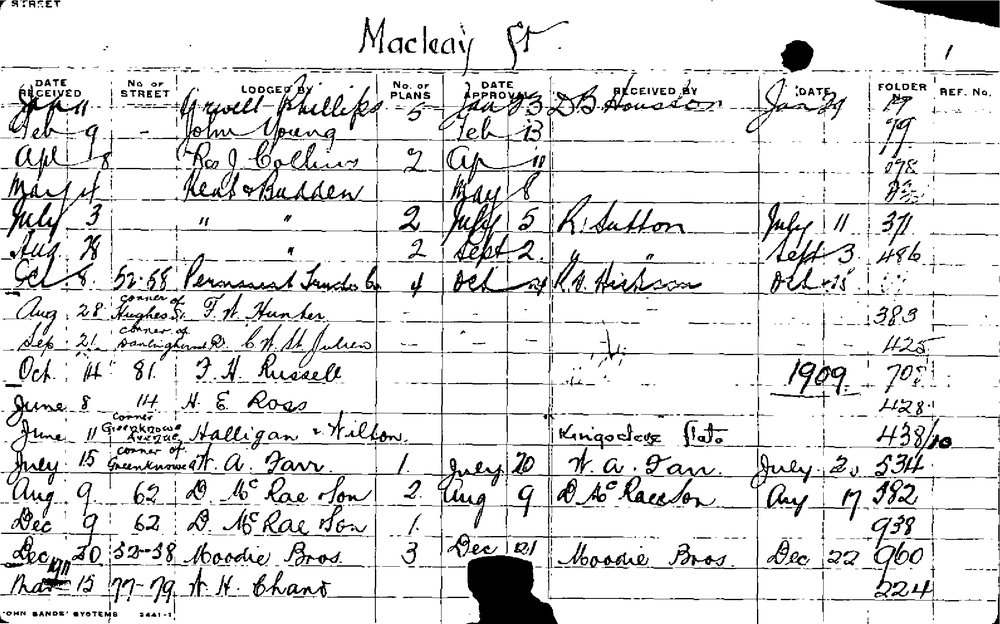 STREET
Macleay St. 1
DATE RECEIVED No. OF STREET LODGED BY No. OF PLANS DATE APPROVAL RECEIVED BY DATE FOLDER REF. No.
Jan 11 Orwell Phillips 5 Jan 23 D B Houston Jan 29
Feb 9 - John Young Feb 13 79
Apl 8 Ros J. Collins 2 Ap 11 098
May 4 Kent & Budden May 8
July 3 " " 2 July 5 R. Sutton July 11 371
Aug 28 " 2 Sept 2. " " Sept 3. 486
Oct 8. 52-58 Permanent Trustee Co 4 Oct 24 R. D. Hickson Oct 25
Aug 28 corner of Hughes St. F. W. Hunter - - - - - - 383
Sep 21. corner of C. W. St. Julien - - - - 425
Oct. 14 81. F. H. Russell 1909. 708
June 8 14 H. E. Ross 428
June 11 corner Greenknowe Avenue Halligan & Wilton. Kingsclere flats 438/10
July 15 corner of Greenknowe A W. A. Farr. 1. July 20 W. A. Farr. July 534
Aug 9. 62 D. McRae & Son 2. Aug 9 D McRae & Son Aug 17 582
Dec 9 62 D. McRae & Son 1. 938
Dec 20 52-58 Moodie Bros. 3 Dec 21 Moodie Bros. Dec 22 960
1911
Mar 15 77-79 W. H. Chant 224
'OHN SANDS' SYSTEMS 2441-1